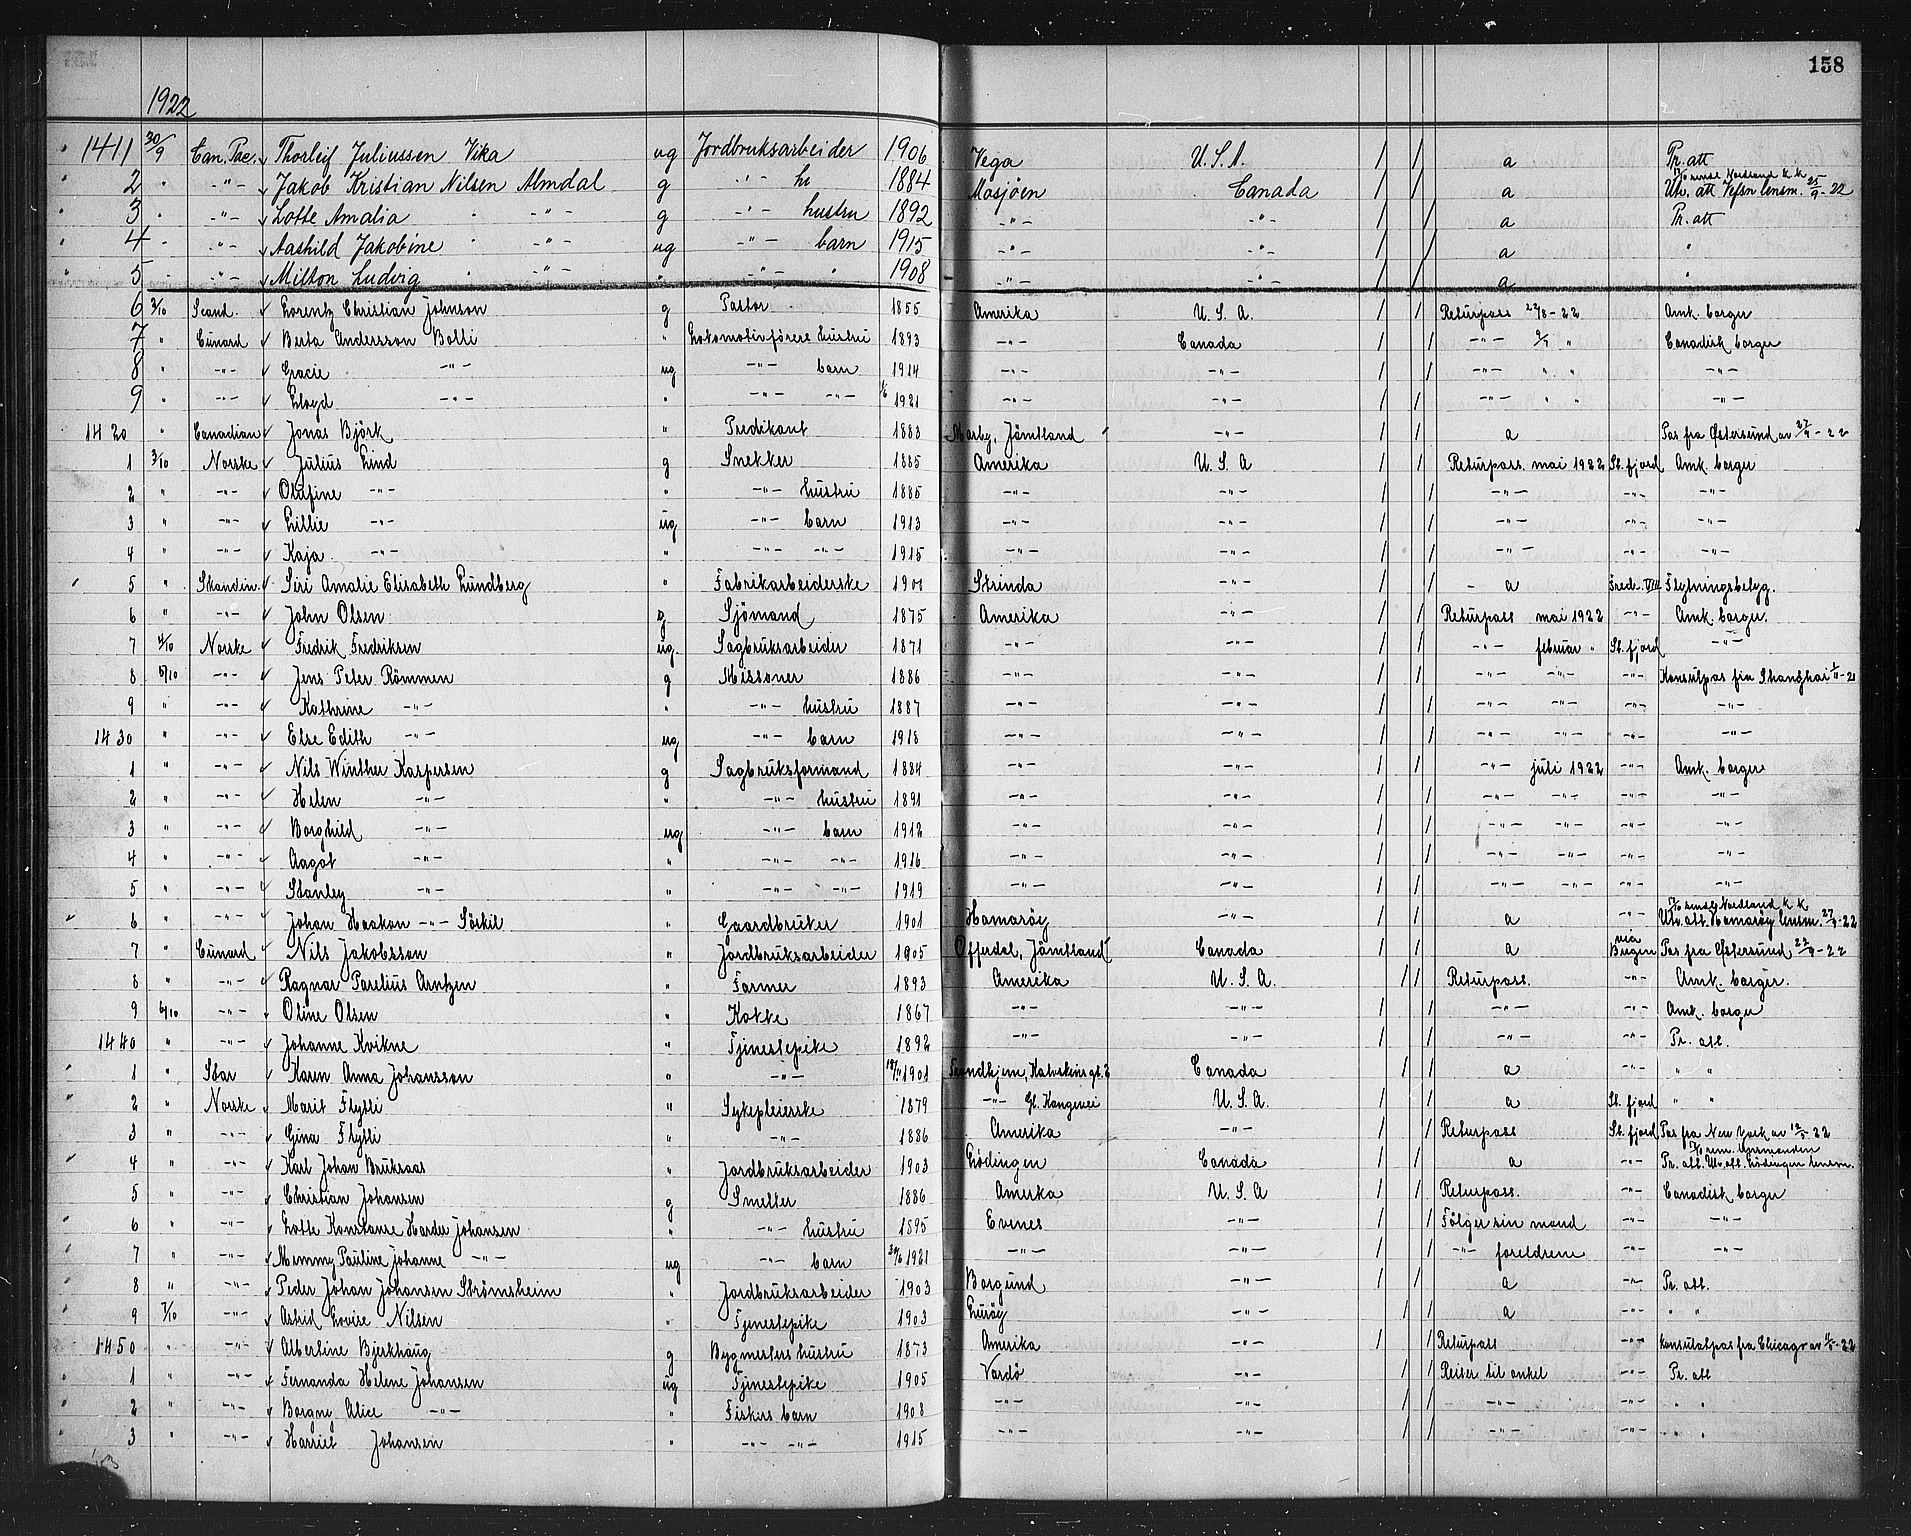 158
1922
1411 30/9 Can. Pac. Thorleif Juliussen Vika ug Jordbruksarbeider 1906 Vega U.S.A. / / a Pr. att
2 " -"- Jakob Kristian Nilsen Almdal g -"- 1884 Mosjøen Canada / / a Utv. att Vefsn lensm. 25/9-22
3 " -"- Lotte Amalia " -"- g -"- hustru 1892 -"- -"- / / a Pr. att
4 " -"- Aashild Jakobine " -"- ug -"- barn 1915 -"- -"- / / a "
5 " -"- Milton Ludvig " -"- " -"- " 1908 -"- -"- / / a "
6 2/10 Scand. Lorentz Christian Johnson g Pastor 1855 Amerika U.S.A. / / Returpass 22/8-22 Amk. borger
7 " Cunard Berta Andersson Bolli " Lokomotivförers hustru 1893 -"- Canada / / -"- " Canadisk borger
8 " -"- Gracie -"- ug -"- barn 1914 -"- -"- / / -"- " " -"-
9 " -"- Lloyd -"- " -"- -"- 1921 -"- -"- / / -"- " " -"-
1420 " Canadian Jonas Björk " Predikant 1883 Marby, Jämtland -"- / / a Pas fra Østersund av 27/9-22
1 3/10 Norske Julius Lind g Snekker 1885 Amerika U.S.A / / Returpass. mai 1922 St. fjord Amk. borger
2 " -"- Olufine -"- " -"- hustru 1885 -"- -"- / / -"- -"- -"-
3 " -"- Lillie -"- ug -"- barn 1913 -"- -"- / / -"- -"- -"-
4 " -"- Kaja -"- " -"- -"- 1915 -"- -"- / / -"- -"- -"-
5 " Skandin. Siri Amalie Elisabeth Lundberg " Fabrikarbeiderske 1900 Strinda -"- / / a Fredr. VIII Flytningsbetyg.
6 " -"- John Olsen g Sjömand 1875 Amerika -"- / / Returpass mai 1922 -"- Amk. borger.
7 4/10 Norske Fredrik Fredriksen ug. Sagbruksarbeider 1871 -"- -"- / / -"- februar " St. fjord -"-
8 5/10 -"- Jens Peter Römmen g Missoner 1886 -"- -"- / / -"- -"- -"- Konsulpas fra Shanghai
9 " -"- Kathrine -"- " -"- hustru 1887 -"- -"- / / -"- -"- -"- -"-
1430 " -"- Else Edith -"- ug -"- barn 1918 -"- -"- / / -"- -"- -"- -"-
1 " -"- Nils Winther Kaspersen g Sagbruksformand 1884 -"- -"- / / -"- juli 1922 -"- Amk. borger
2 " -"- Helen -"- " -"- hustru 1891 -"- -"- / / -"- -"- -"- -"-
3 " -"- Borghild -"- ug -"- barn 1912 -"- -"- / / -"- -"- -"- -"-
4 " -"- Aagot -"- " -"- -"- 1916 -"- -"- / / -"- -"- -"- -"-
5 " -"- Stanley -"- " -"- -"- 1919 -"- -"- / / -"- -"- -"- -"-
6 " -"- Johan Haakon -"- Sörkil " Gaardbruker 1901 Hamaröy -"- / / a -"- Utv. att. Hamaröy lensm. 27/9-22
7 " Cunard Nils Jakobsson " Jordbruksarbeider 1905 Offerdal, Jämtland Canada / / a via Bergen Pas fra Østersund 22/9-22
8 " -"- Ragnar Parelius Arntzen " Farmer 1893 Amerika U.S.A. / / Returpass. -"- Amk. borger.
9 6/10 -"- Oline Olsen " Kokke 1867 -"- -"- / / -"- -"- Amk. borger
1440 " -"- Johanne Kvikne " Tjenestepike 1892 -"- -"- / / -"- -"- Pr. att.
1 " Star Karen Anna Johansson " -"- 1901 Trondhjem, Kalvskinsgt. 3 Canada / / a -"- " "
2 " Norske Marit Flytli " Sykepleierske 1879 -"- Gl. Kongevei U.S.A. / / a St. fjord " "
3 " -"- Gina Flytli " -"- 1886 Amerika -"- / / Returpass St. fjord Pas fra New York av 12/5-22
4 " -"- Karl Johan Bruksaas " Jordbruksarbeider 1903 Lödingen Canada / / a -"- Pr. att. Utv. att. Lödingen lensm.
5 " -"- Christian Johansen g Smelter 1886 Amerika U.S.A / / Returpass. -"- Canadisk borger
6 " -"- Lotte Konstanse Harder Johansen " -"- hustru 1895 Evenes -"- / / Fölger sin mand -"- -"-
7 " -"- Memmy Pauline Johanne -"- ug -"- barn 1921 -"- -"- / / -"- foreldrene -"- -"-
8 " -"- Peder Johan Johansen Strömsheim " Jordbruksarbeider 1903 Borgund -"- / / a -"- Pr. att.
9 7/10 -"- Astrid Lovise Nilsen " Tjenestepike 1903 Luröy -"- / / a -"- " "
1450 " -"- Albertine Bjerkhaug g Bygmesters hustru 1873 Amerika -"- / / Returpass -"- Konsulatpas fra Chicago av 4/5-22
1 " -"- Fernanda Helene Johansen ug Tjenestepike 1905 Vardö -"- / / Reiser til onkel -"- Pr. att
2 " -"- Borgny Alice -"- " Fiskers barn 1908 -"- -"- / / -"- -"- " "
3 " -"- Harriet Johansen " -"- -"- 1915 -"- -"- / / -"- -"- " "